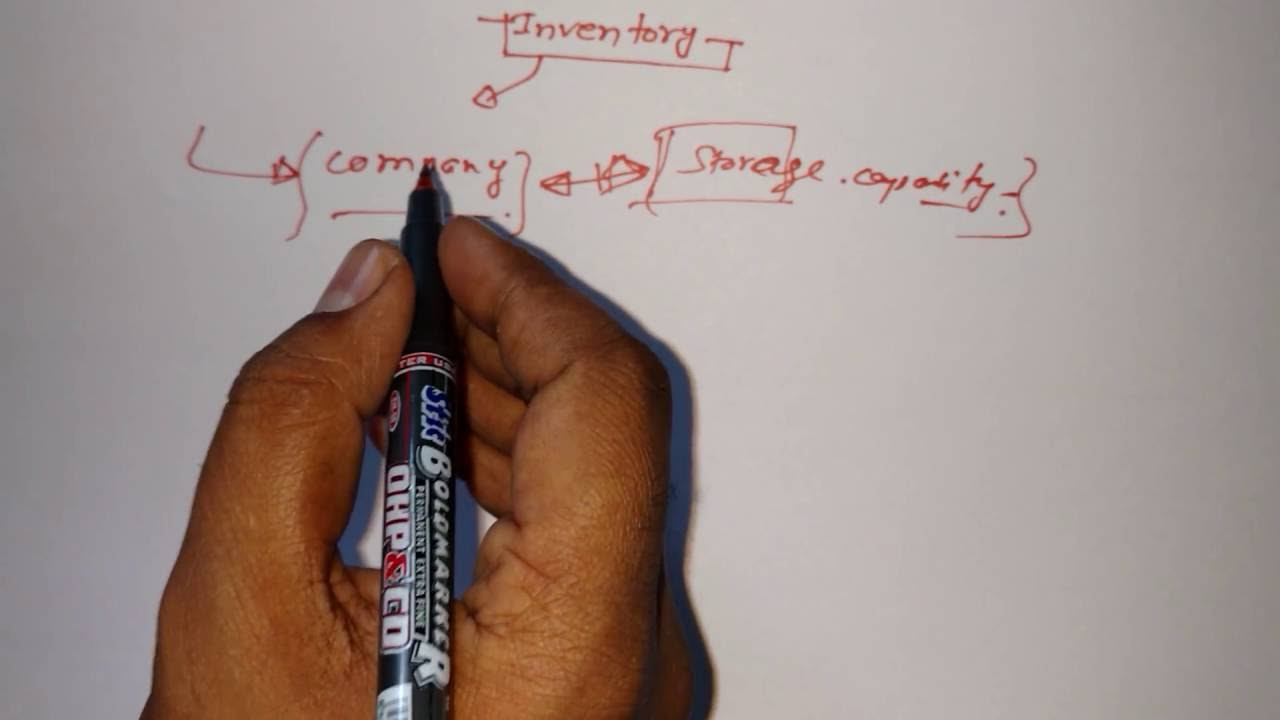 Inventory
Company
Storage capacity.
TER US
BOLDMARKER
OHP & CD
PERMANENT EXTRA FINE